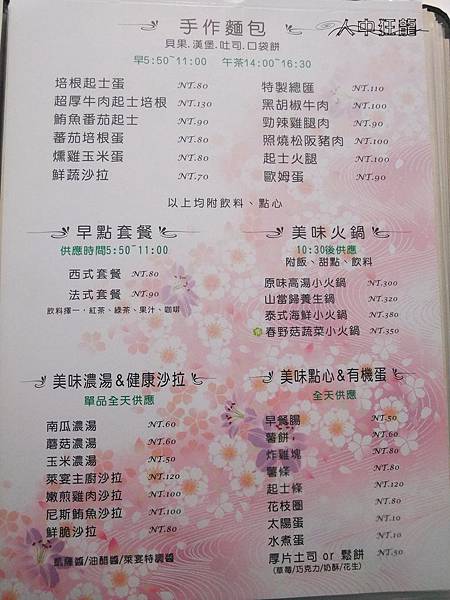 手作麵包
人中狂龍
貝果.漢堡.吐司.口袋餅
早5:50~11:00 午茶14:00~16:30
培根起士蛋 NT.80
超厚牛肉起士培根 NT.130
鮪魚番茄起士 NT.90
蕃茄培根蛋 NT.80
燻雞玉米蛋 NT.80
鮮蔬沙拉 NT.70
特製總匯 NT.110
黑胡椒牛肉 NT.100
勁辣雞腿肉 NT.90
照燒松阪豬肉 NT.100
起士火腿 NT.100
歐姆蛋 NT.90
以上均附飲料、點心
早點套餐
供應時間5:50~11:00
西式套餐 NT.80
法式套餐 NT.90
飲料擇一.紅茶、綠茶、果汁、咖啡
美味火鍋
10:30後供應
附飯、甜點、飲料
原味高湯小火鍋 NT.300
山當歸養生鍋 NT.320
泰式海鮮小火鍋 NT.380
春野菇蔬菜小火鍋 NT.350
美味濃湯&健康沙拉
單品全天供應
南瓜濃湯 NT.60
蘑菇濃湯 NT.60
玉米濃湯 NT.50
萊宴主廚沙拉 NT.120
嫩煎雞肉沙拉 NT.100
尼斯鮪魚沙拉 NT.100
鮮脆沙拉 NT.80
凱薩醬/油醋醬/萊宴特調醬
美味點心&有機蛋
全天供應
早餐腸 NT.50
薯餅 NT.60
炸雞塊 NT.80
薯條 NT.80
起士條 NT.80
花枝圈 NT.80
太陽蛋 NT.10
水煮蛋 NT.10
厚片土司 or 鬆餅 NT.50
(草莓/巧克力/奶酥/花生)